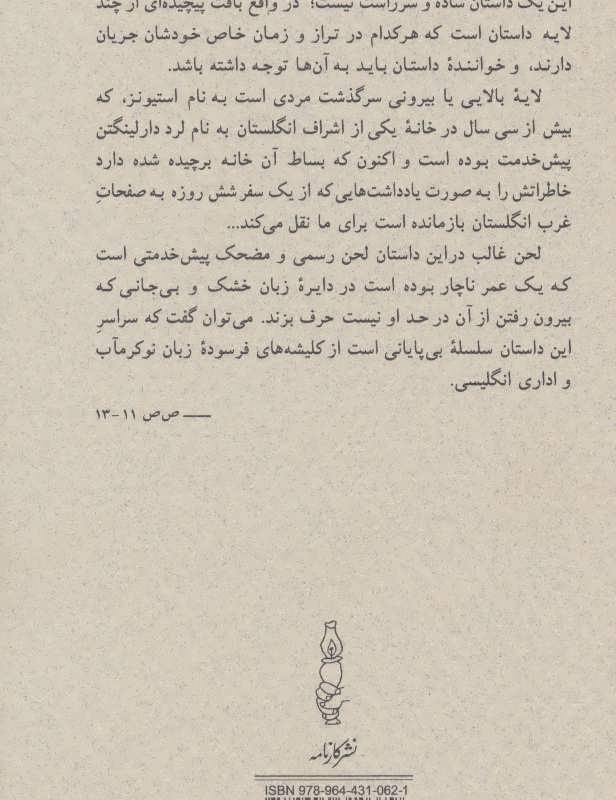 این یک داستان ساده و سرراست نیست؛ در واقع بافت پیچیده‌ای از چند
لایه داستان است که هرکدام در تراز و زمان خاص خودشان جریان
دارند، و خوانندهٔ داستان باید به آن‌ها توجه داشته باشد.
لایهٔ بالایی یا بیرونی سرگذشت مردی است به نام استیونز، که
بیش از سی سال در خانهٔ یکی از اشراف انگلستان به نام لرد دارلینگتن
پیش‌خدمت بوده است و اکنون که بساط آن خانه برچیده شده دارد
خاطراتش را به صورت یادداشت‌هایی که از یک سفر شش روزه به صفحاتِ
غرب انگلستان بازمانده است برای ما نقل می‌کند...
لحن غالب دراین داستان لحن رسمی و مضحک پیش‌خدمتی است
که یک عمر ناچار بوده است در دایرهٔ زبان خشک و بی‌جانی که
بیرون رفتن از آن در حد او نیست حرف بزند. می‌توان گفت که سراسرِ
این داستان سلسلهٔ بی‌پایانی است از کلیشه‌های فرسودهٔ زبان نوکرمآب
و اداری انگلیسی.
—— صص ۱۱-۱۳
نشر کارنامه
ISBN 978-964-431-062-1